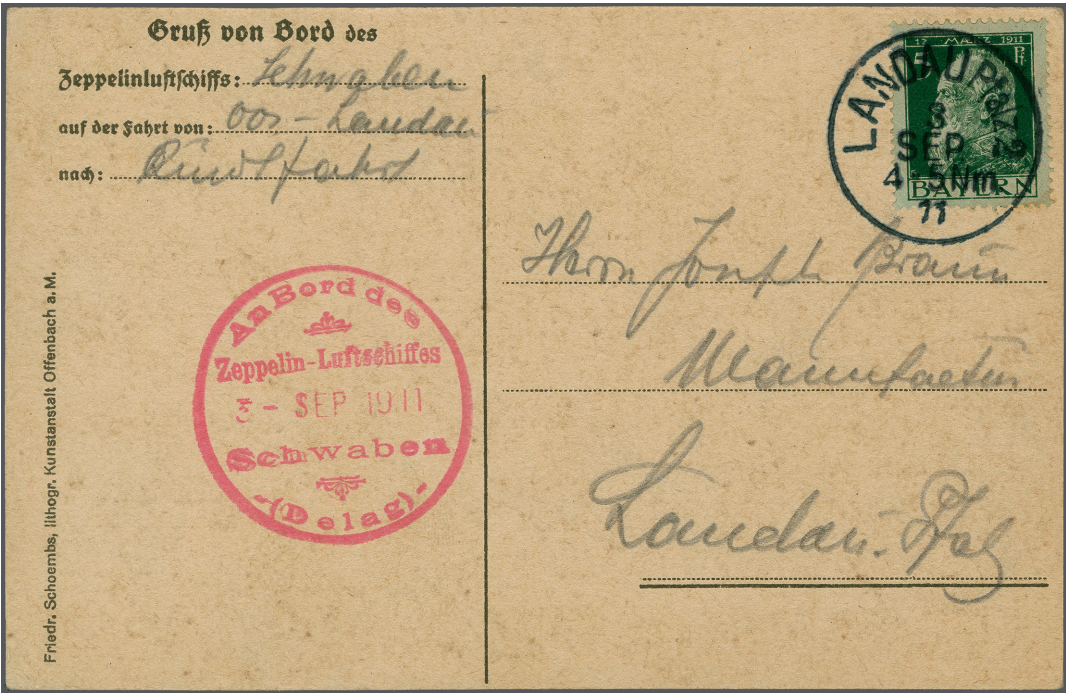 Gruß von Bord des
Zeppelinluftschiffs: Schwaben
auf der Fahrt von: Oos – Landau
nach: Rundfahrt
Friedr. Schoembs, lithogr. Kunstanstalt Offenbach a. M.
An Bord des
Zeppelin-Luftschiffes
3 - SEP 1911
Schwaben
-(Delag)-
12. MÄRZ 1911
5 Pf.
BAYERN
LANDAU PFALZ 2
3
SEP
4-5 Nm
11
Herrn Joseph Braun
Manufactur
Landau. Pfalz